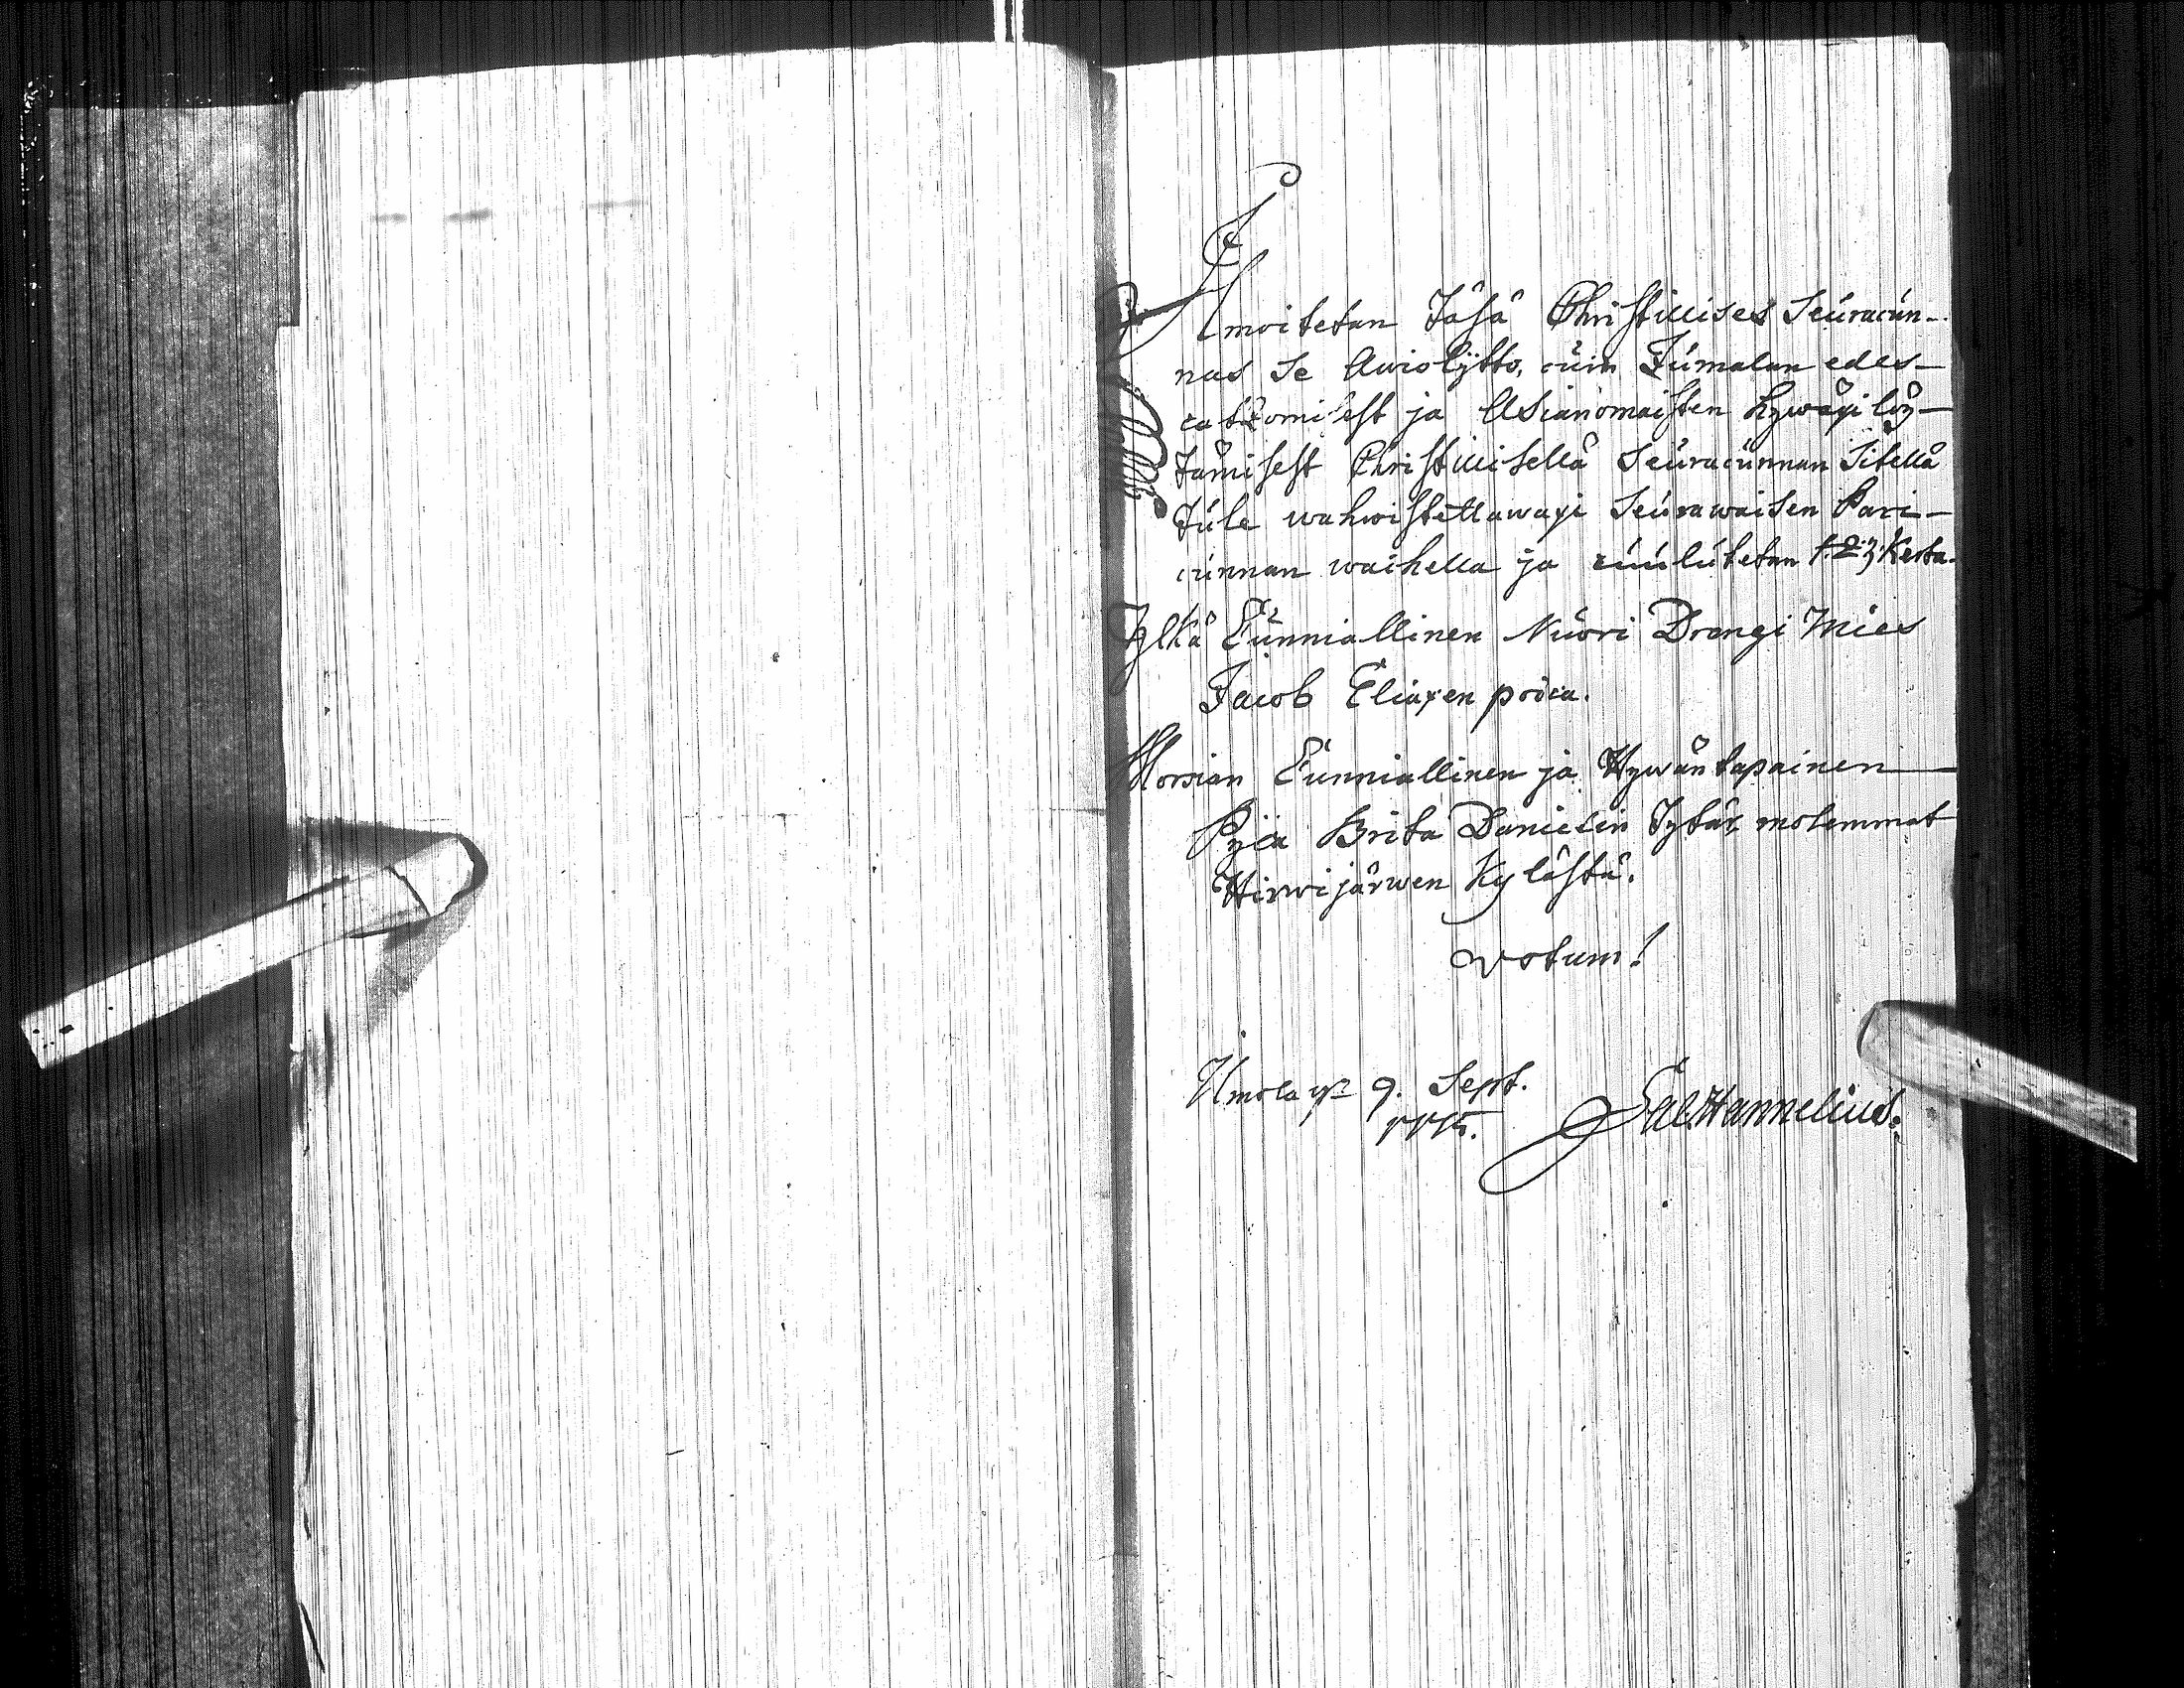 Ilmoitetan Täsä Christillises Seuracun-
nas se Awiolijtto, cuin Jumalan edes-
catzomisest ja Asianomaisten hywäxi löy-
tämisest Christillisellä Seuracunnan Sitellä
Tule wahwistettawaxi Seurawaisen Pari-
cunnan waihella ja cuulutetan 1. 2. 3. Kerta.
Yljkä Cunniallinen Nuori Drengi Mies
Jacob Eliaxen poica.
Morsian Cunniallinen ja Hywäntapainen
Pijca Brita Danielin Tytär, molemmat
Hirwijärwen Kylästä.
Votum!
9. Sept.
1775.
Sal. Hannelius.